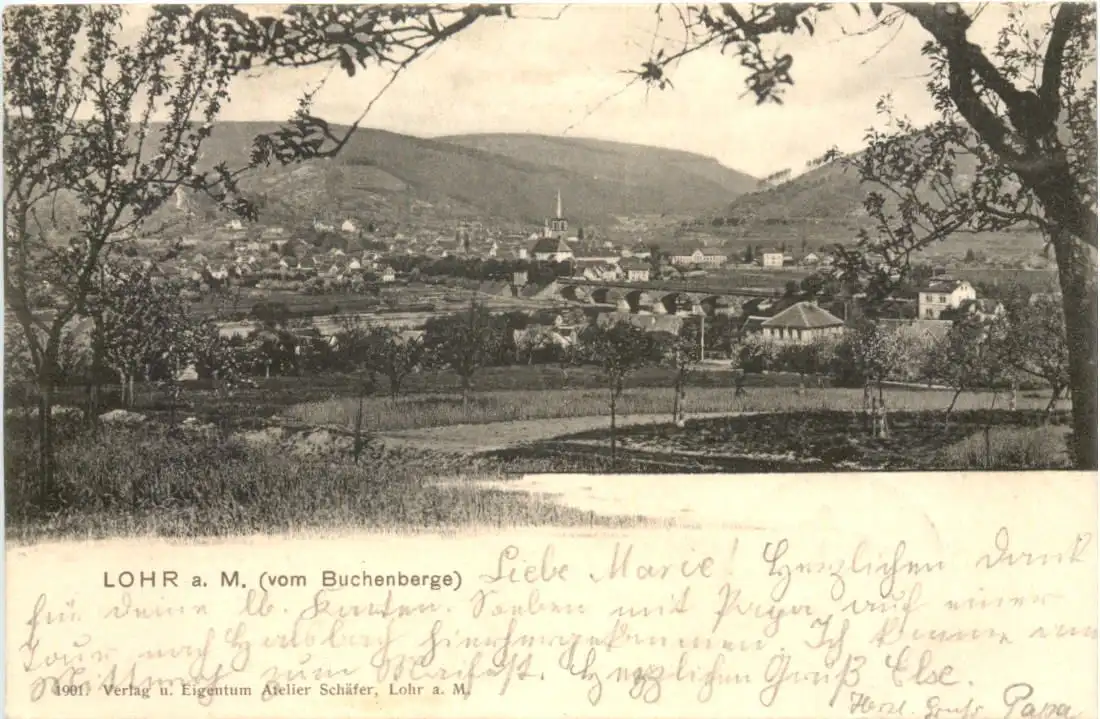 LOHR a. M. (vom Buchenberge)
Liebe Marie! Herzlichen Dank
für Deine lb. Karten. Soeben mit Papa auf einer
Tour nach hierhergekommen. Ich komme am
Mittwoch zum Maifest. Herzlichen Gruß Else.
1901. Verlag u. Eigentum Atelier Schäfer, Lohr a. M.
Herzl. Gruß Papa